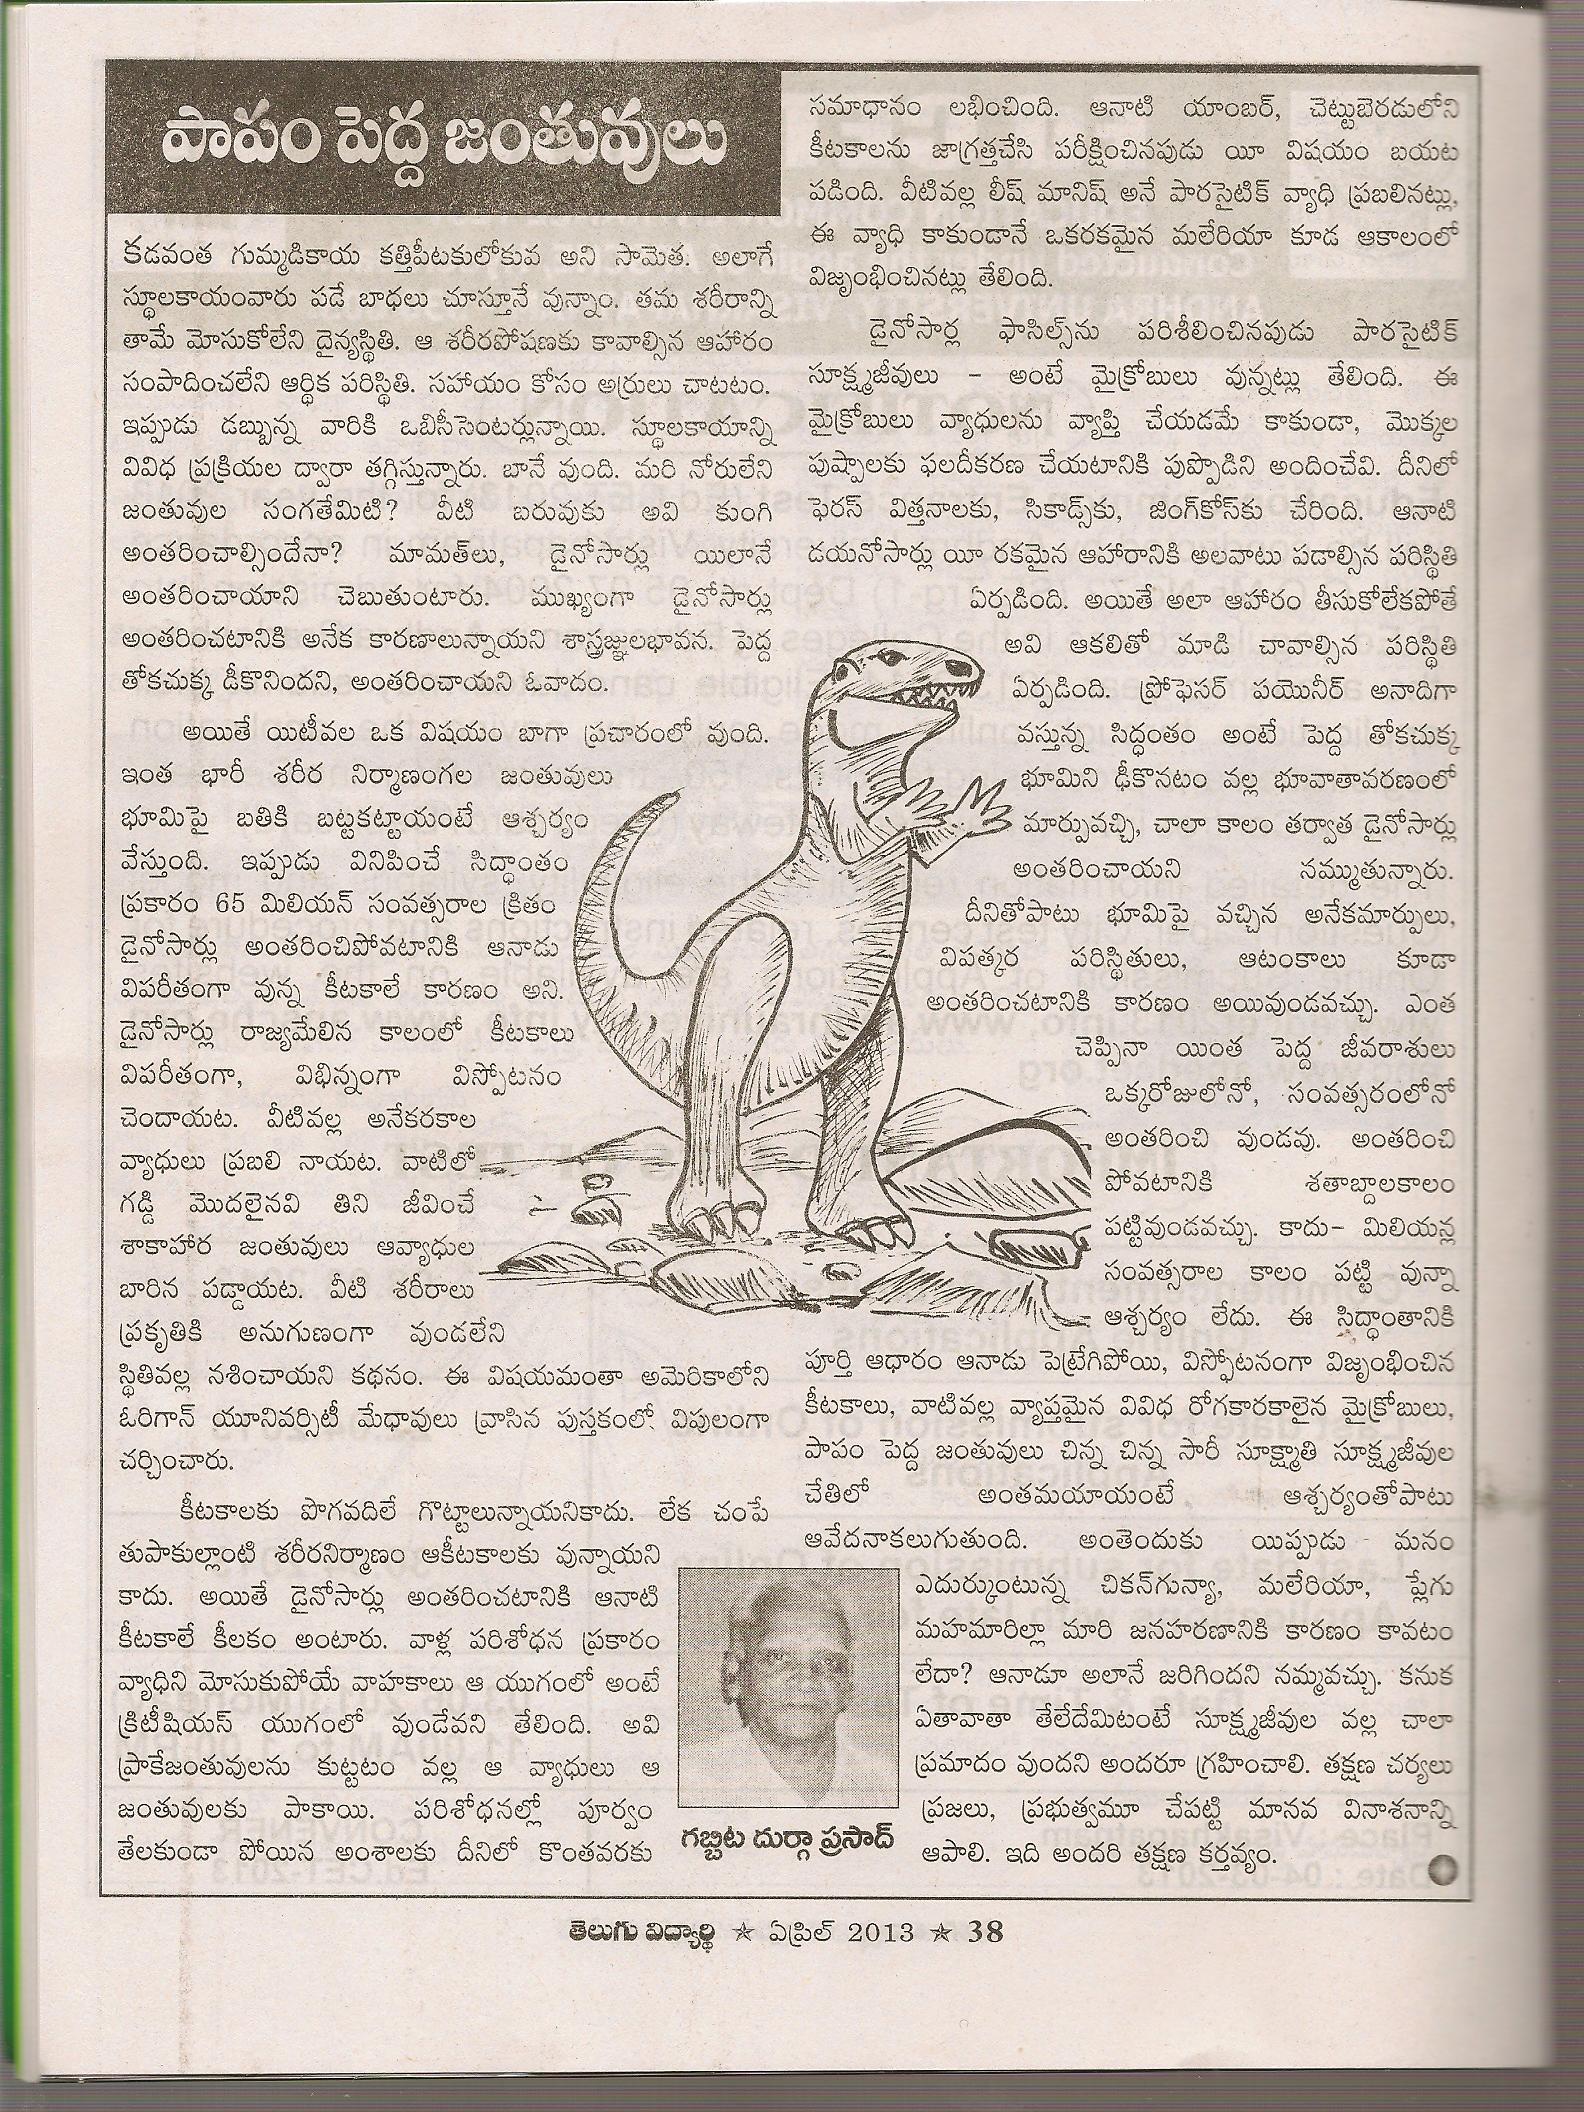 పాపం పెద్ద జంతువులు
కడవంత గుమ్మడికాయ కత్తిపీటకులోకువ అని సామెత. అలాగే
స్థూలకాయంవారు పడే బాధలు చూస్తూనే వున్నాం. తమ శరీరాన్ని
తామే మోసుకోలేని దైన్యస్థితి. ఆ శరీరపోషణకు కావాల్సిన ఆహారం
సంపాదించలేని ఆర్థిక పరిస్థితి. సహాయం కోసం అర్రులు చాటటం.
ఇప్పుడు డబ్బున్న వారికి ఒబిసీసెంటర్లున్నాయి. స్థూలకాయాన్ని
వివిధ ప్రక్రియల ద్వారా తగ్గిస్తున్నారు. బానే వుంది. మరి నోరులేని
జంతువుల సంగతేమిటి? వీటి బరువుకు అవి కుంగి
అంతరించాల్సిందేనా? మామత్‌లు, డైనోసార్లు యిలానే
అంతరించాయాని చెబుతుంటారు. ముఖ్యంగా డైనోసార్లు
అంతరించటానికి అనేక కారణాలున్నాయని శాస్త్రజ్ఞులభావన. పెద్ద
తోకచుక్క డీకొనిందని, అంతరించాయని ఓవాదం.
అయితే యిటీవల ఒక విషయం బాగా ప్రచారంలో వుంది.
ఇంత భారీ శరీర నిర్మాణంగల జంతువులు
భూమిపై బతికి బట్టకట్టాయంటే ఆశ్చర్యం
వేస్తుంది. ఇప్పుడు వినిపించే సిద్ధాంతం
ప్రకారం 65 మిలియన్ సంవత్సరాల క్రితం
డైనోసార్లు అంతరించిపోవటానికి ఆనాడు
విపరీతంగా వున్న కీటకాలే కారణం అని.
డైనోసార్లు రాజ్యమేలిన కాలంలో కీటకాలు
విపరీతంగా, విభిన్నంగా విస్ఫోటనం
చెందాయట. వీటివల్ల అనేకరకాల
వ్యాధులు ప్రబలి నాయట. వాటిలో
గడ్డి మొదలైనవి తిని జీవించే
శాకాహార జంతువులు ఆవ్యాధుల
బారిన పడ్డాయట. వీటి శరీరాలు
ప్రకృతికి అనుగుణంగా వుండలేని
స్థితివల్ల నశించాయని కథనం. ఈ విషయమంతా అమెరికాలోని
ఓరిగాన్ యూనివర్సిటీ మేధావులు వ్రాసిన పుస్తకంలో విపులంగా
చర్చించారు.
కీటకాలకు పొగవదిలే గొట్టాలున్నాయనికాదు. లేక చంపే
తుపాకుల్లాంటి శరీరనిర్మాణం ఆకీటకాలకు వున్నాయని
కాదు. అయితే డైనోసార్లు అంతరించటానికి ఆనాటి
కీటకాలే కీలకం అంటారు. వాళ్ల పరిశోధన ప్రకారం
వ్యాధిని మోసుకుపోయే వాహకాలు ఆ యుగంలో అంటే
క్రిటీషియస్ యుగంలో వుండేవని తేలింది. అవి
ప్రాకేజంతువులను కుట్టటం వల్ల ఆ వ్యాధులు ఆ
జంతువులకు పాకాయి. పరిశోధనల్లో పూర్వం
తేలకుండా పోయిన అంశాలకు దీనిలో కొంతవరకు
సమాధానం లభించింది. ఆనాటి యాంబర్, చెట్టుబెరడులోని
కీటకాలను జాగ్రత్తచేసి పరీక్షించినపుడు యీ విషయం బయట
పడింది. వీటివల్ల లీష్ మానిష్ అనే పారసైటిక్ వ్యాధి ప్రబలినట్లు,
ఈ వ్యాధి కాకుండానే ఒకరకమైన మలేరియా కూడ ఆకాలంలో
విజృంభించినట్లు తేలింది.
డైనోసార్ల ఫాసిల్స్‌ను పరిశీలించినపుడు పారసైటిక్
సూక్ష్మజీవులు - అంటే మైక్రోబులు వున్నట్లు తేలింది. ఈ
మైక్రోబులు వ్యాధులను వ్యాప్తి చేయడమే కాకుండా, మొక్కల
పుష్పాలకు ఫలదీకరణ చేయటానికి పుప్పొడిని అందించేవి. దీనిలో
ఫెరస్ విత్తనాలకు, సికాడ్స్‌కు, జింగ్‌కోస్‌కు చేరింది. ఆనాటి
డయనోసార్లు యీ రకమైన ఆహారానికి అలవాటు పడాల్సిన పరిస్థితి
ఏర్పడింది. అయితే అలా ఆహారం తీసుకోలేకపోతే
అవి ఆకలితో మాడి చావాల్సిన పరిస్థితి
ఏర్పడింది. ప్రోఫెసర్ పయొనీర్ అనాదిగా
వస్తున్న సిద్ధంతం అంటే పెద్ద తోకచుక్క
భూమిని ఢీకొనటం వల్ల భూవాతావరణంలో
మార్పువచ్చి, చాలా కాలం తర్వాత డైనోసార్లు
అంతరించాయని నమ్ముతున్నారు.
దీనితోపాటు భూమిపై వచ్చిన అనేకమార్పులు,
విపత్కర పరిస్థితులు, ఆటంకాలు కూడా
అంతరించటానికి కారణం అయివుండవచ్చు. ఎంత
చెప్పినా యింత పెద్ద జీవరాశులు
ఒక్కరోజులోనో, సంవత్సరంలోనో
అంతరించి వుండవు. అంతరించి
పోవటానికి శతాబ్దాలకాలం
పట్టివుండవచ్చు. కాదు- మిలియన్ల
సంవత్సరాల కాలం పట్టి వున్నా
ఆశ్చర్యం లేదు. ఈ సిద్ధాంతానికి
పూర్తి ఆధారం ఆనాడు పెట్రేగిపోయి, విస్ఫోటనంగా విజృంభించిన
కీటకాలు, వాటివల్ల వ్యాప్తమైన వివిధ రోగకారకాలైన మైక్రోబులు,
పాపం పెద్ద జంతువులు చిన్న చిన్న సారీ సూక్ష్మాతి సూక్ష్మజీవుల
చేతిలో అంతమయాయంటే ఆశ్చర్యంతోపాటు
ఆవేదనాకలుగుతుంది. అంతెందుకు యిప్పుడు మనం
ఎదుర్కుంటున్న చికన్‌గున్యా, మలేరియా, ప్లేగు
మహమారిల్లా మారి జనహరణానికి కారణం కావటం
లేదా? ఆనాడూ అలానే జరిగిందని నమ్మవచ్చు. కనుక
ఏతావాతా తేలేదేమిటంటే సూక్ష్మజీవుల వల్ల చాలా
ప్రమాదం వుందని అందరూ గ్రహించాలి. తక్షణ చర్యలు
ప్రజలు, ప్రభుత్వమూ చేపట్టి మానవ వినాశనాన్ని
ఆపాలి. ఇది అందరి తక్షణ కర్తవ్యం.
గబ్బిట దుర్గా ప్రసాద్
తెలుగు విద్యార్థి ★ ఏప్రిల్ 2013 ★ 38